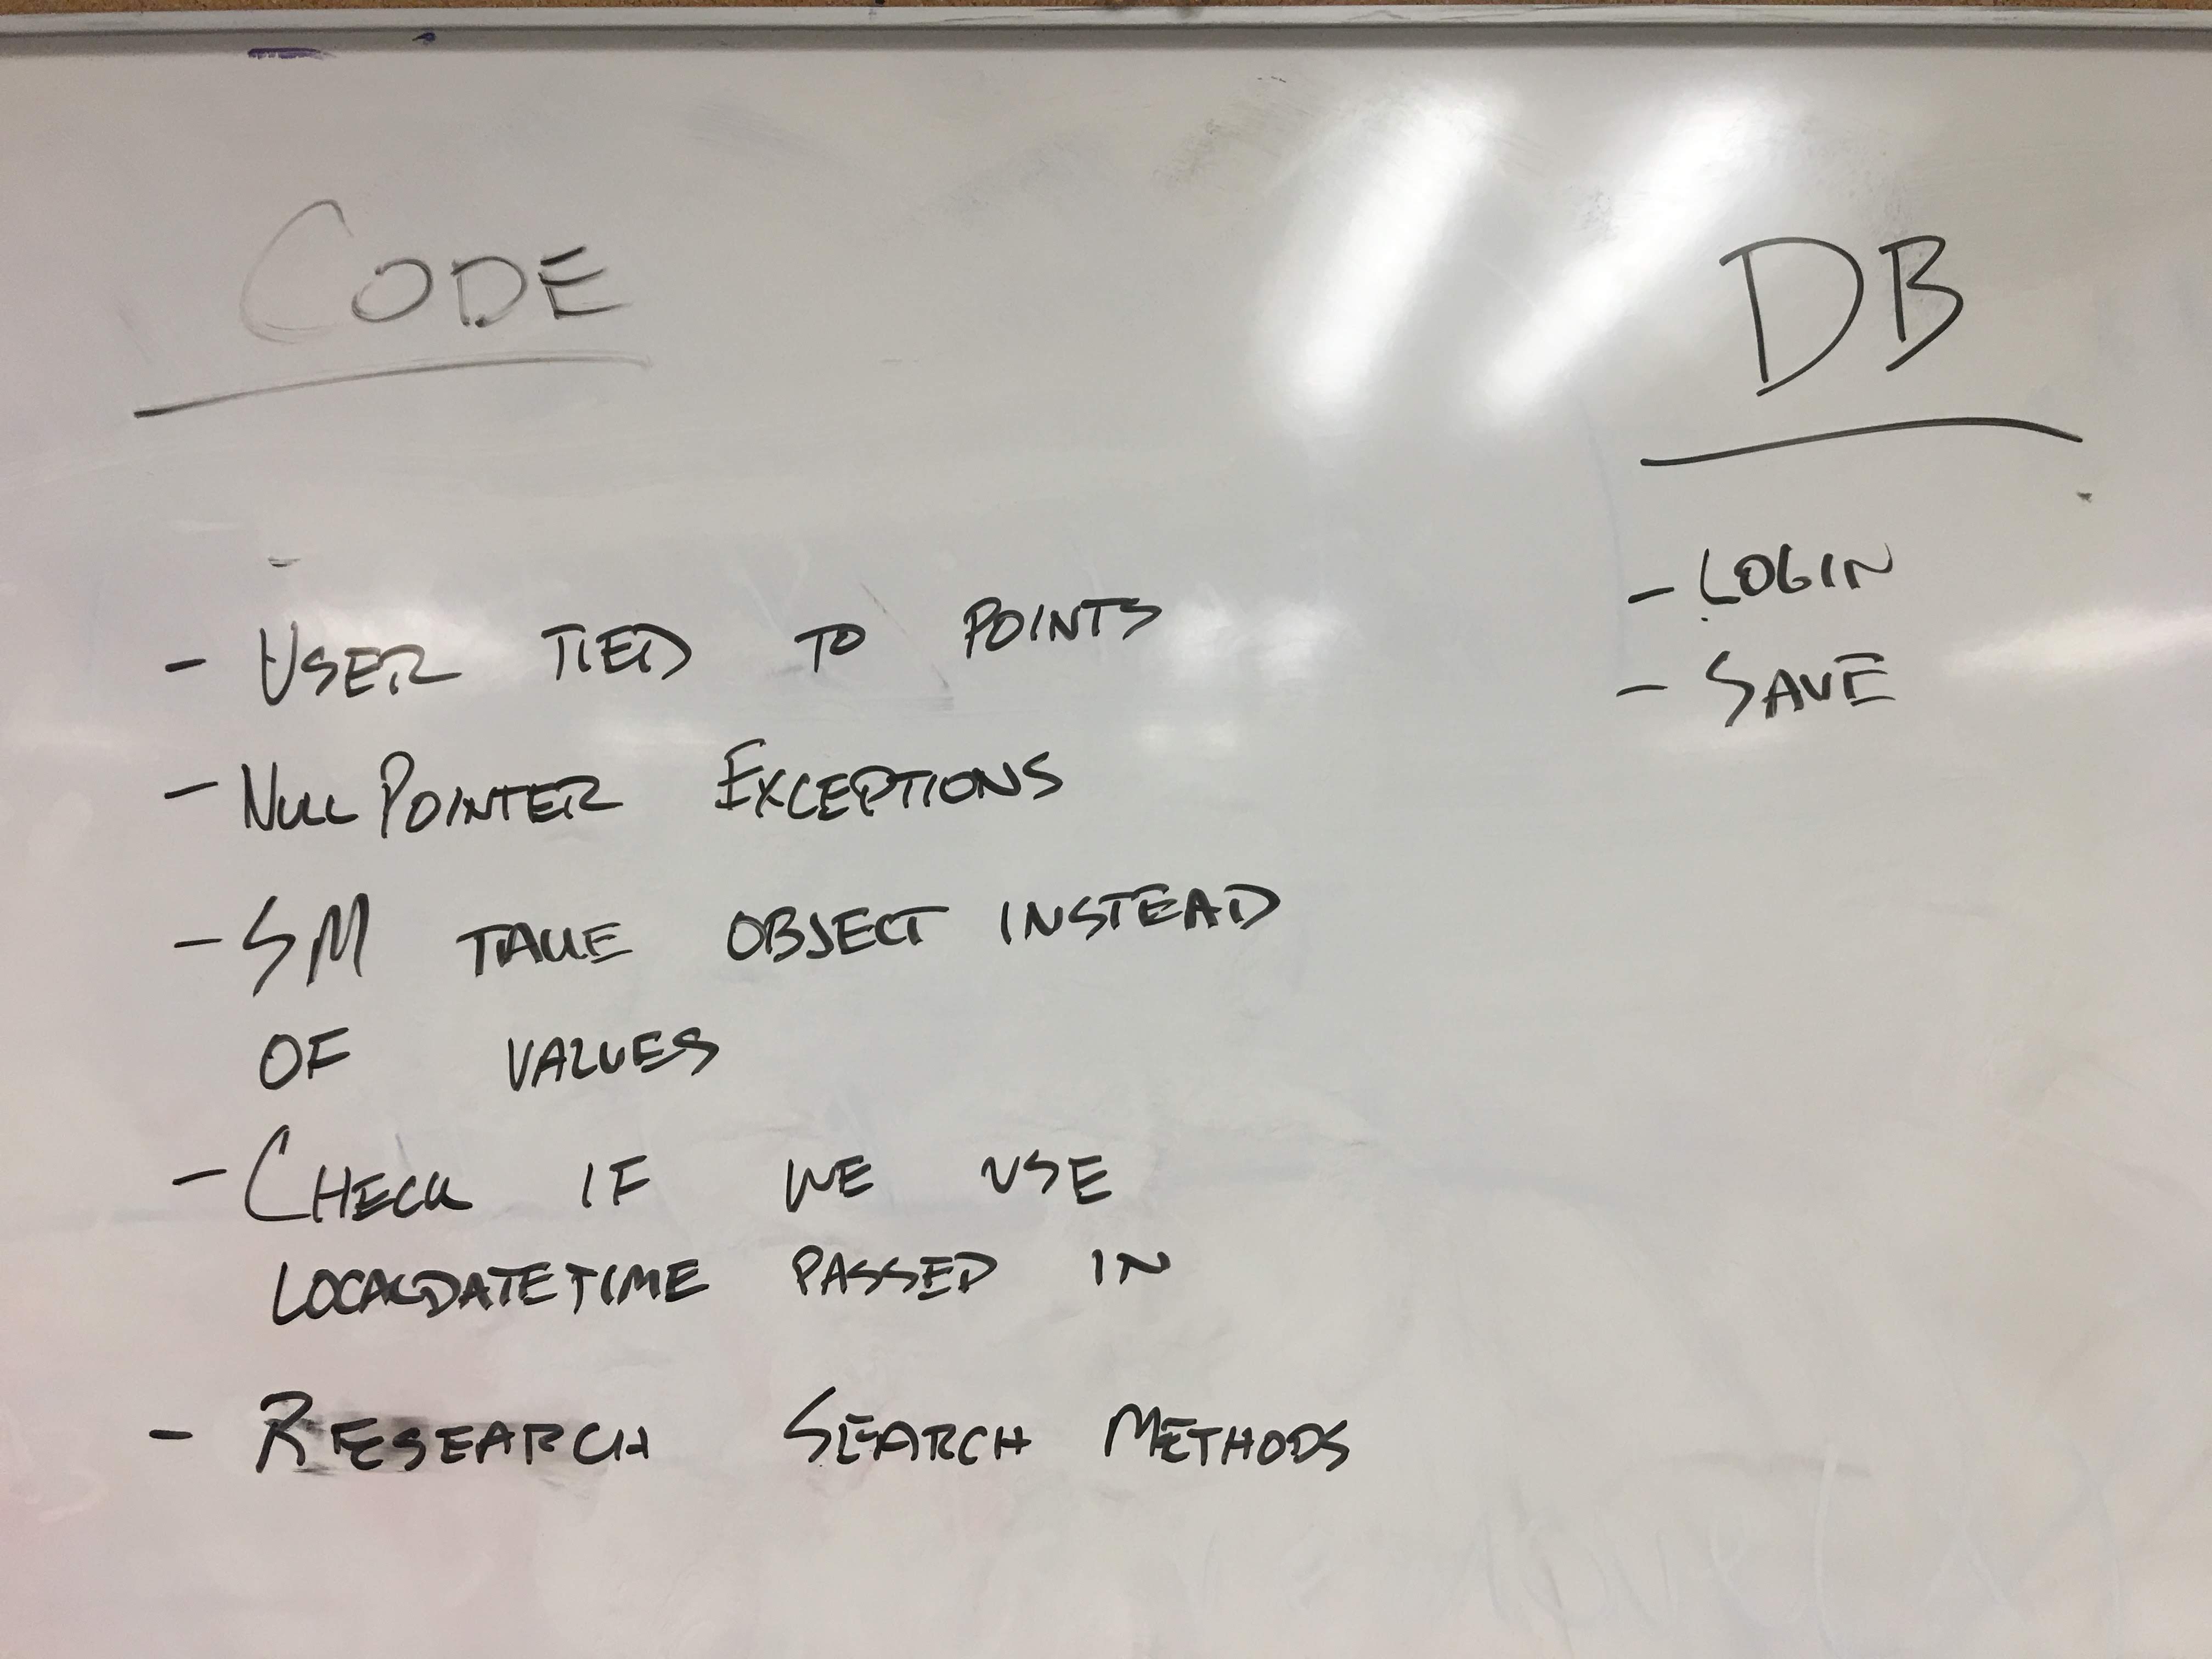 CODE
- USER TIED TO POINTS
- NULLPOINTER EXCEPTIONS
- SM TAKE OBJECT INSTEAD
OF VALUES
- CHECK IF WE USE
LOCALDATETIME PASSED IN
- RESEARCH SEARCH METHODS
DB
- LOGIN
- SAVE